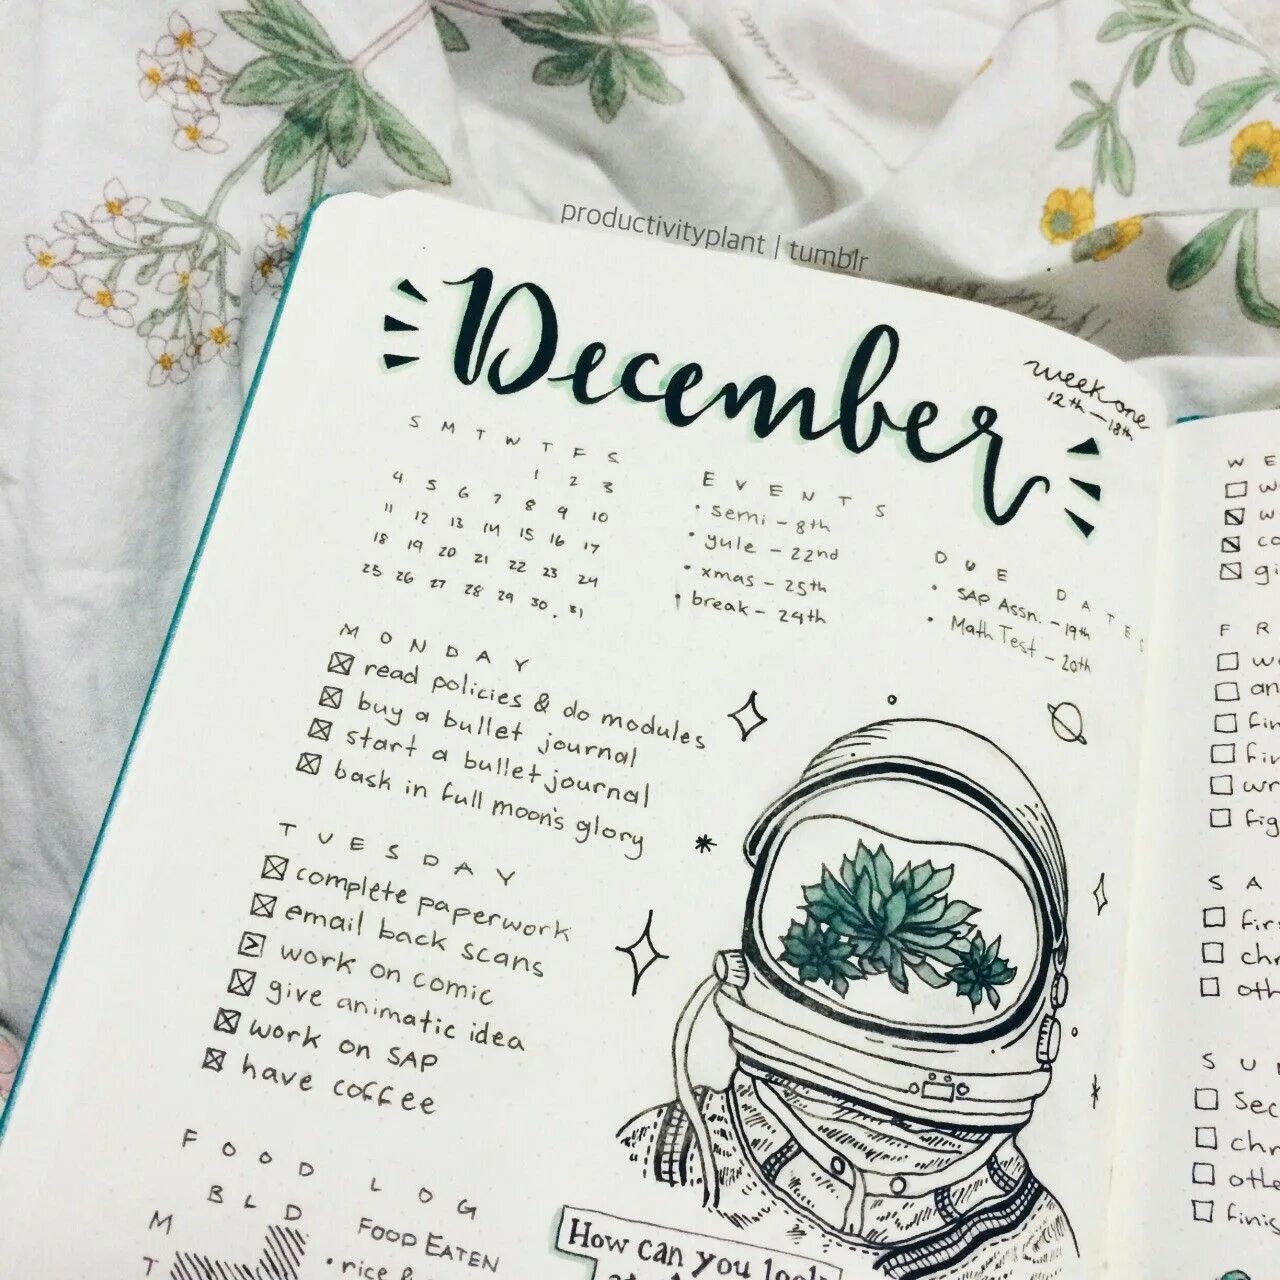 productivityplant | tumblr
December
week one
12th – 18th
S M T W T F S
1 2 3
4 5 6 7 8 9 10
11 12 13 14 15 16 17
18 19 20 21 22 23 24
25 26 27 28 29 30 31
EVENTS
• semi – 8th
• yule – 22nd
• xmas – 25th
• break – 24th
DUE DATES
• SAP Assn. – 19th
• Math Test – 20th
MONDAY
read policies & do modules
buy a bullet journal
start a bullet journal
bask in full moon's glory
TUESDAY
complete paperwork
email back scans
work on comic
give animatic idea
work on SAP
have coffee
FOOD LOG
B L D
M
T
FOOD EATEN
• rice &
How can you look
W E
w
co
gi
F R
an
fin
fin
wr
fig
S A
firs
chr
oth
S U
sec
chr
othe
finis